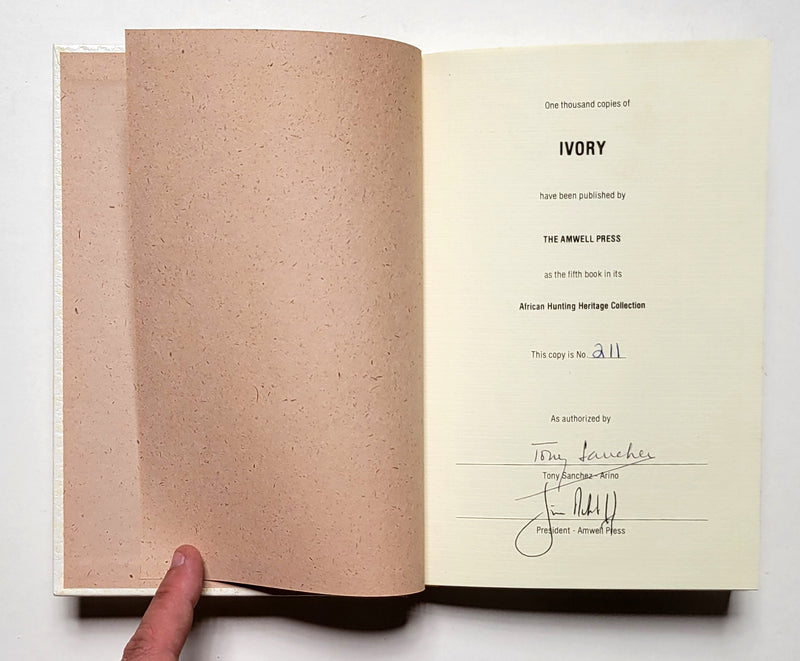 One thousand copies of
IVORY
have been published by
THE AMWELL PRESS
as the fifth book in its
African Hunting Heritage Collection
This copy is No. 211
As authorized by
Tony Sanchez
Tony Sanchez - Arino
Jim
President - Amwell Press